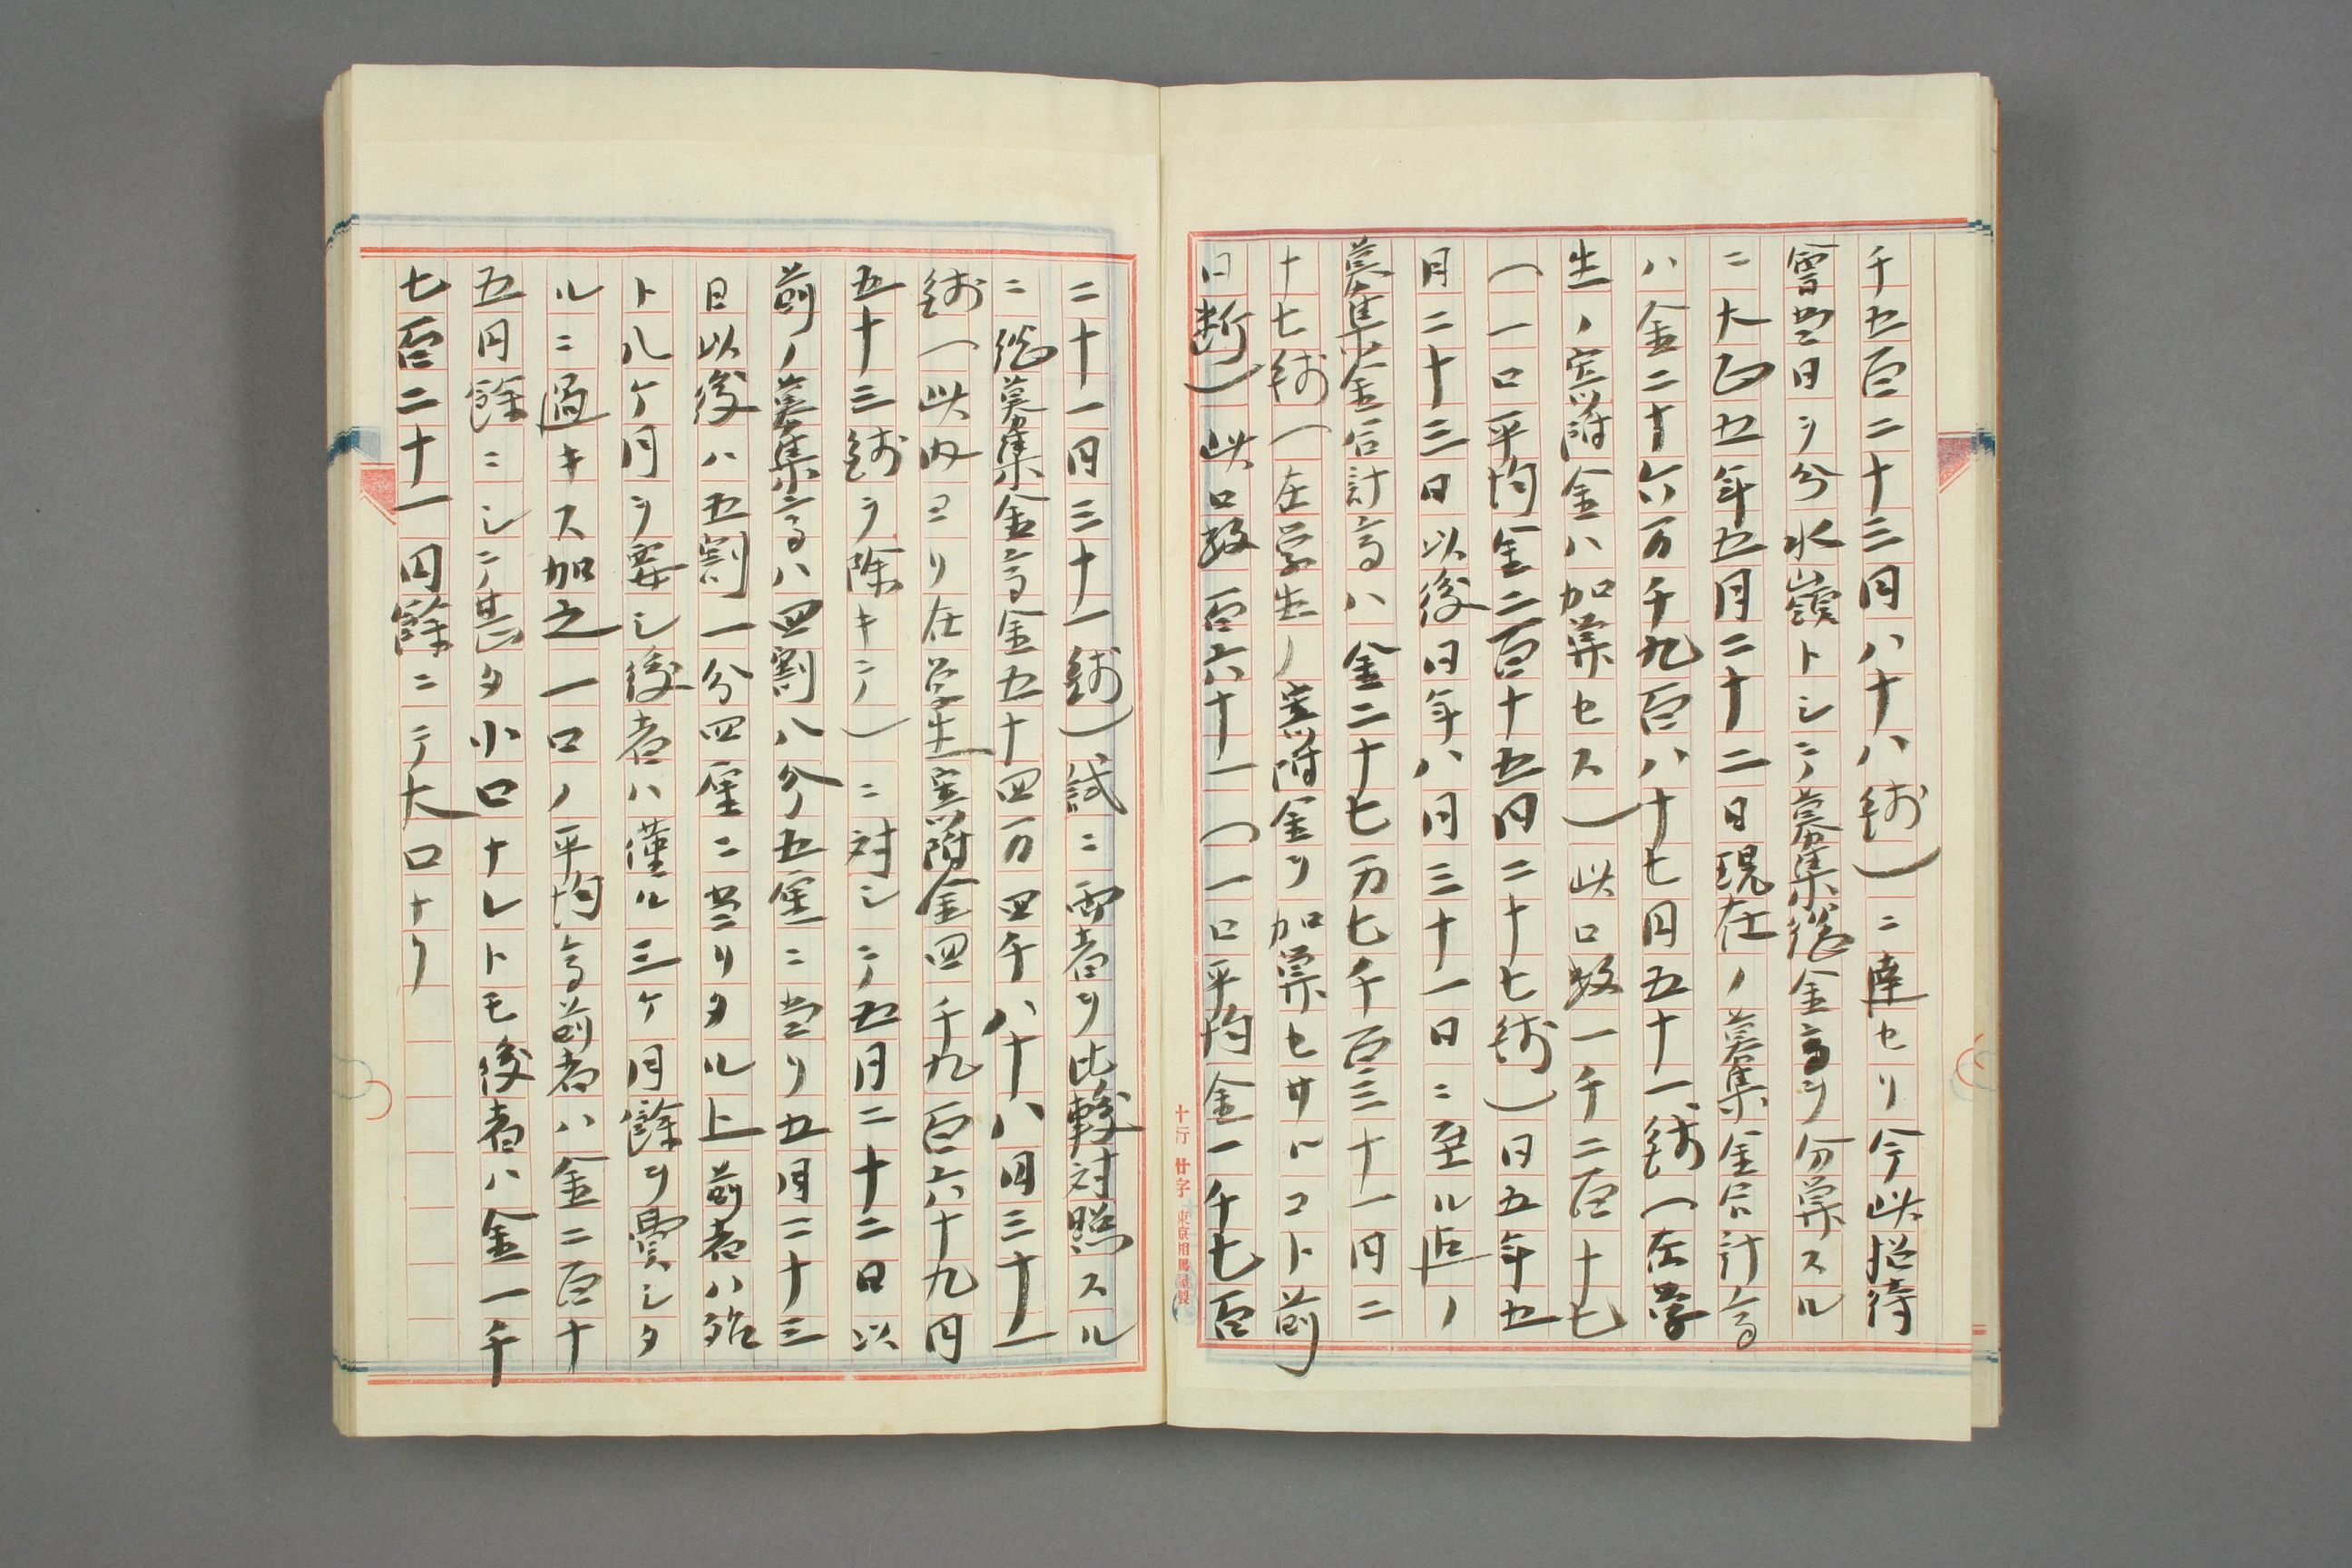 千五百二十三円八十八銭）ニ達セリ今此招待
會当日ヲ分水嶺トシテ募集総金高ヲ分算スル
ニ大正五年五月二十二日現在ノ募集金合計高
ハ金二十六万千九百八十七円五十一銭（在学
生ノ寄附金ハ加算セス）此口数一千二百十七
（一口平均金二百十五円二十七銭）同五年五
月二十三日以後同年八月三十一日ニ至ル迄ノ
募集金合計高ハ金二十七万七千百三十一円二
十七銭（在学生ノ寄附金ヲ加算セサルコト前
同断）此口数百六十一（一口平均金一千七百
二十一円三十一銭）試ニ両者ヲ比較対照スル
ニ総募集金高金五十四万四千八十八円三十一
銭（此内ヨリ在学生寄附金四千九百六十九円
五十三銭ヲ除キテ）ニ対シテ五月二十二日以
前ノ募集高ハ四割八分五厘ニ当リ五月二十三
日以後ハ五割一分四厘ニ当リタル上前者ハ殆
ト八ケ月ヲ要シ後者ハ僅ル三ケ月餘ヲ費シタ
ルニ過キス加之一口ノ平均高前者ハ金二百十
五円餘ニシテ甚タ小口ナレトモ後者ハ金一千
七百二十一円餘ニテ大口ナリ
十行 廿字 東京相馬屋製